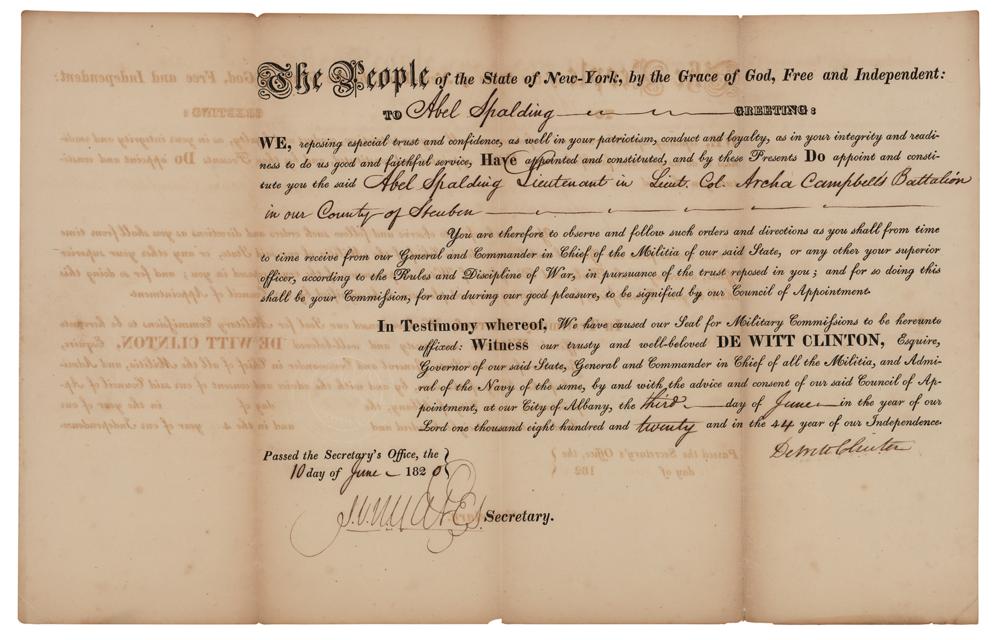 The People of the State of New-York, by the Grace of God, Free and Independent:
TO Abel Spalding GREETING:
WE, reposing especial trust and confidence, as well in your patriotism, conduct and loyalty, as in your integrity and readi-
ness to do us good and faithful service, Have appointed and constituted, and by these Presents Do appoint and consti-
tute you the said Abel Spalding Lieutenant in Lieut. Col. Archa Campbells Battalion
in our County of Steuben
You are therefore to observe and follow such orders and directions as you shall from time
to time receive from our General and Commander in Chief of the Militia of our said State, or any other your superior
officer, according to the Rules and Discipline of War, in pursuance of the trust reposed in you; and for so doing this
shall be your Commission, for and during our good pleasure, to be signified by our Council of Appointment.
In Testimony whereof, We have caused our Seal for Military Commissions to be hereunto
affixed: Witness our trusty and well-beloved DE WITT CLINTON, Esquire,
Governor of our said State, General and Commander in Chief of all the Militia, and Admi-
ral of the Navy of the same, by and with the advice and consent of our said Council of Ap-
pointment, at our City of Albany, the third day of June in the year of our
Lord one thousand eight hundred and twenty and in the 44 year of our Independence.
DeWitt Clinton
Passed the Secretary's Office, the
10 day of June 1820
Secretary.